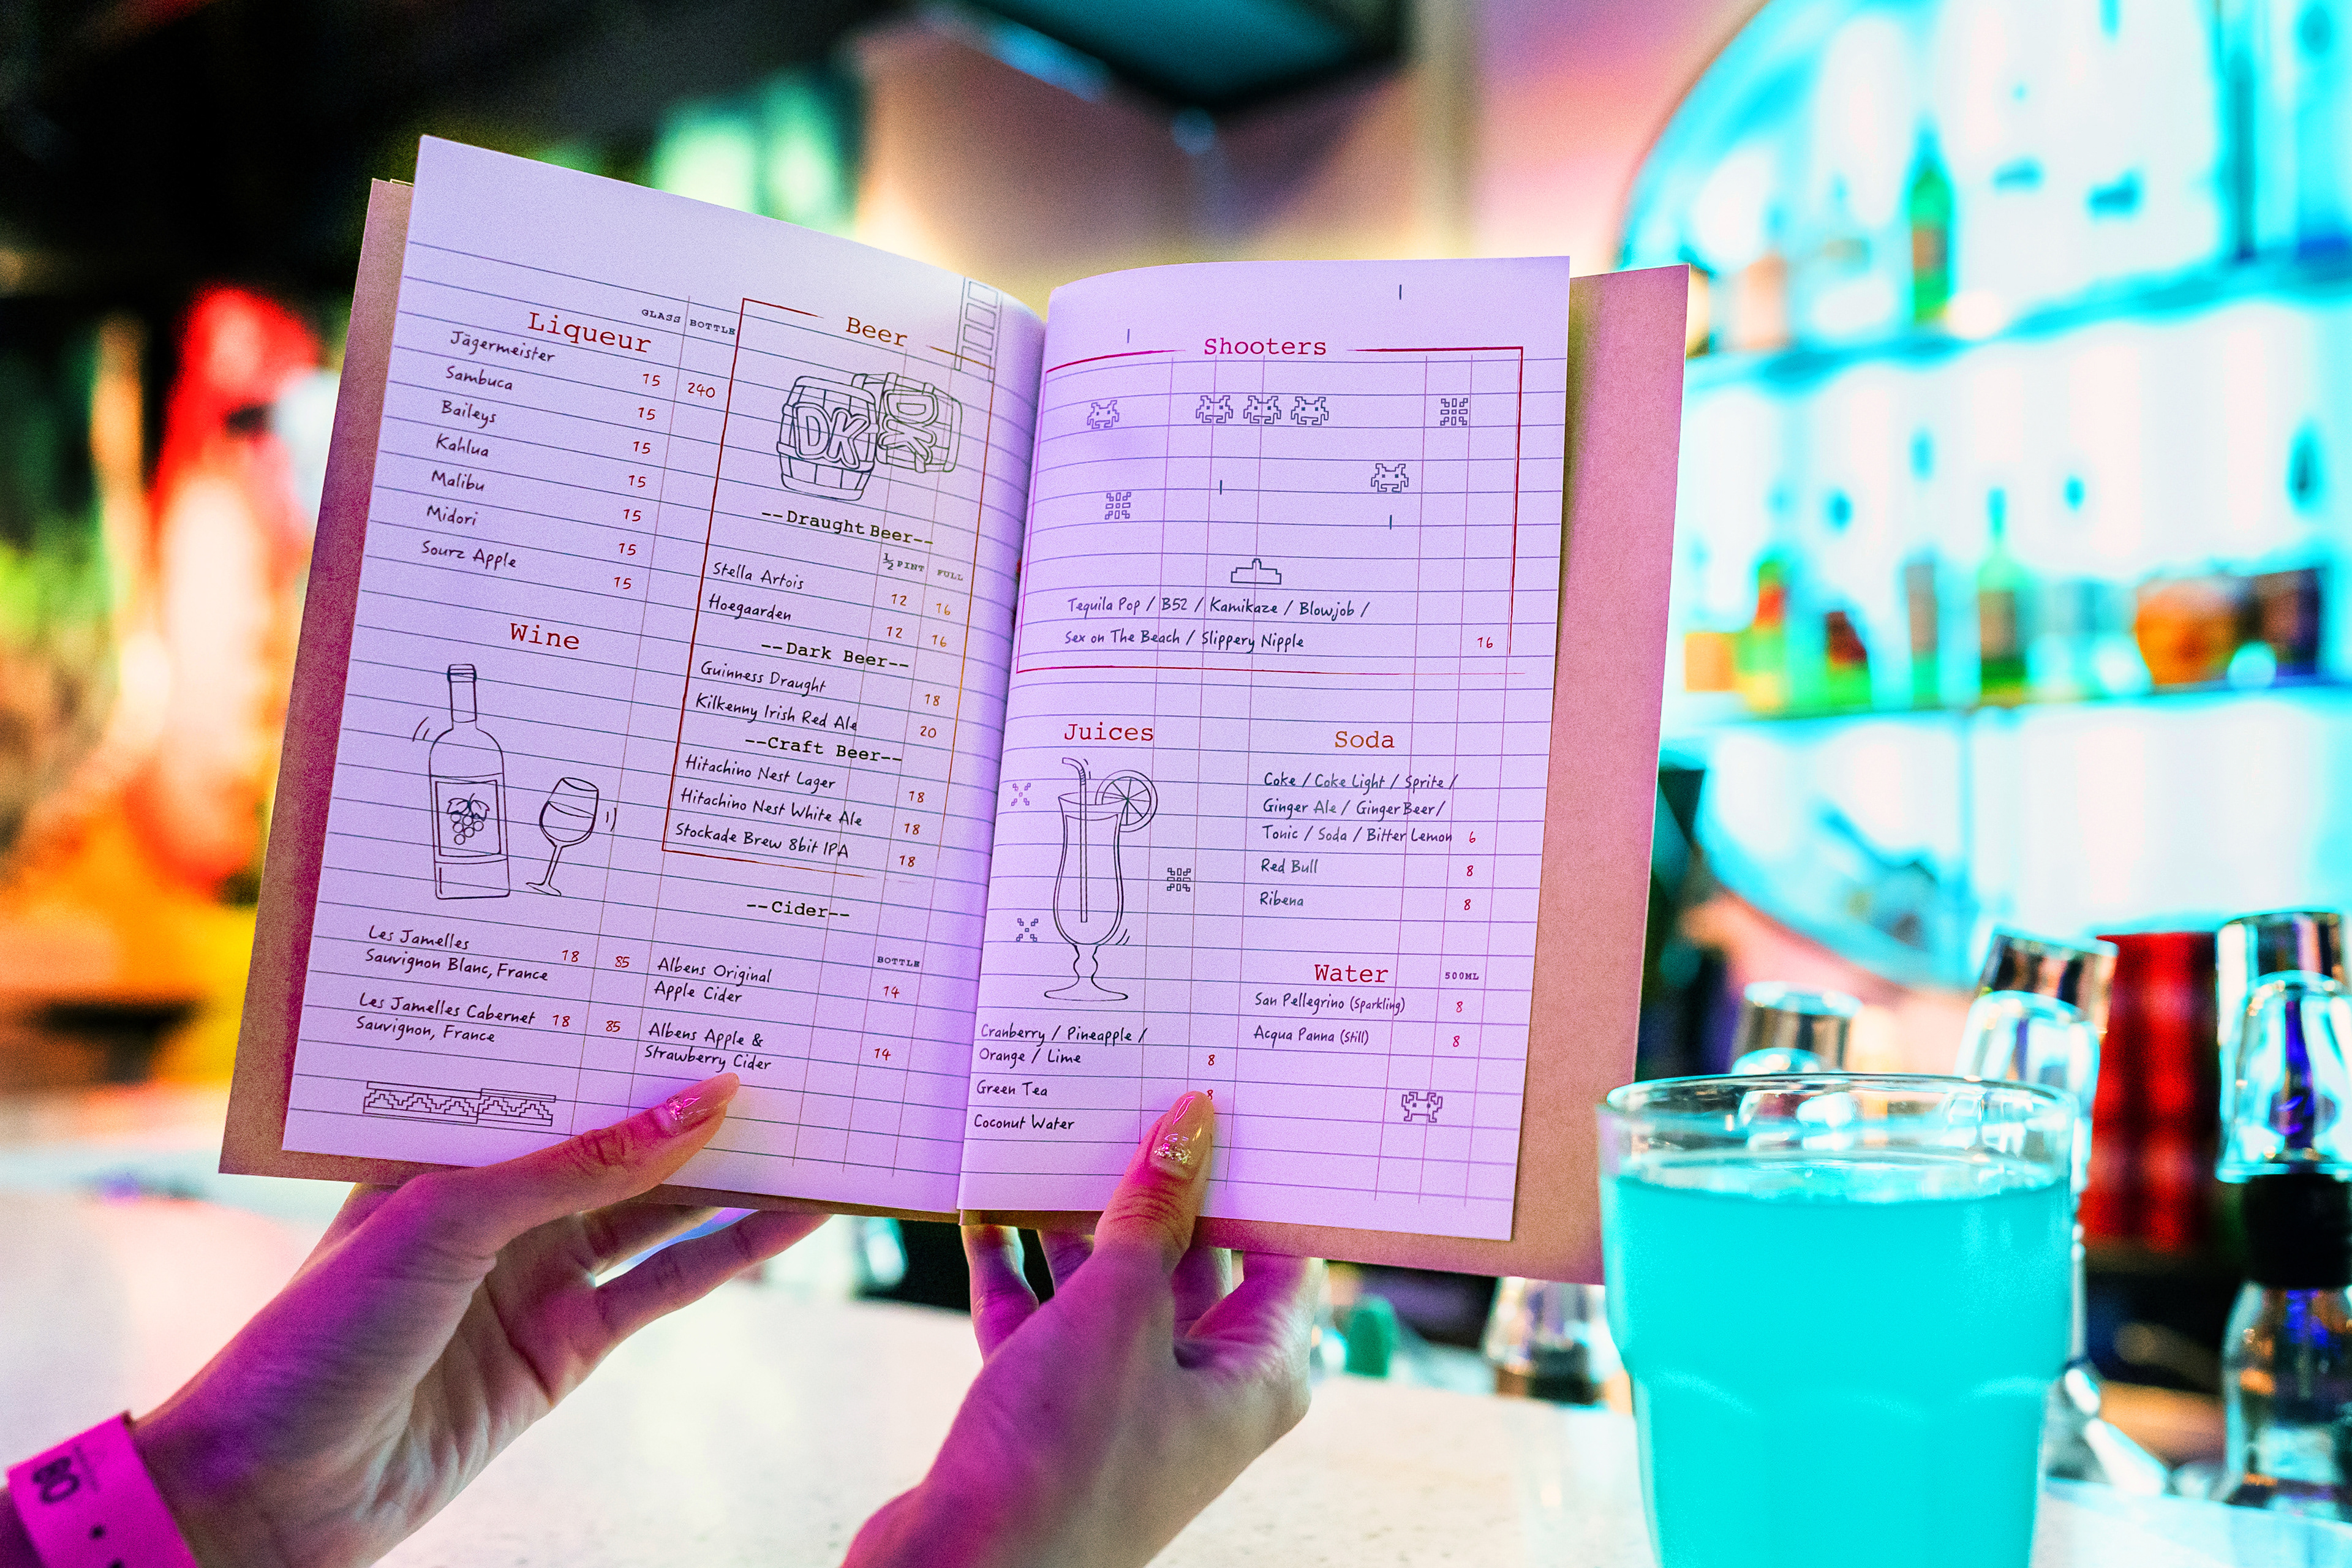 GLASS BOTTLE
Liqueur
Jägermeister 15 240
Sambuca 15
Baileys 15
Kahlua 15
Malibu 15
Midori 15
Sourz Apple 15
Wine
Les Jamelles
Sauvignon Blanc, France 18 85
Les Jamelles Cabernet 18 85
Sauvignon, France
Beer
DK DK
--Draught Beer--
½ PINT FULL
Stella Artois 12 16
Hoegaarden 12 16
--Dark Beer--
Guinness Draught 18
Kilkenny Irish Red Ale 20
--Craft Beer--
Hitachino Nest Lager 18
Hitachino Nest White Ale 18
Stockade Brew 8bit IPA 18
--Cider--
BOTTLE
Albens Original
Apple Cider 14
Albens Apple &
Strawberry Cider 14
Shooters
Tequila Pop / B52 / Kamikaze / Blowjob /
Sex on The Beach / Slippery Nipple 16
Juices
Cranberry / Pineapple /
Orange / Lime 8
Green Tea 8
Coconut Water
Soda
Coke / Coke Light / Sprite /
Ginger Ale / Ginger Beer /
Tonic / Soda / Bitter Lemon 6
Red Bull 8
Ribena 8
Water 500ML
San Pellegrino (Sparkling) 8
Acqua Panna (Still) 8